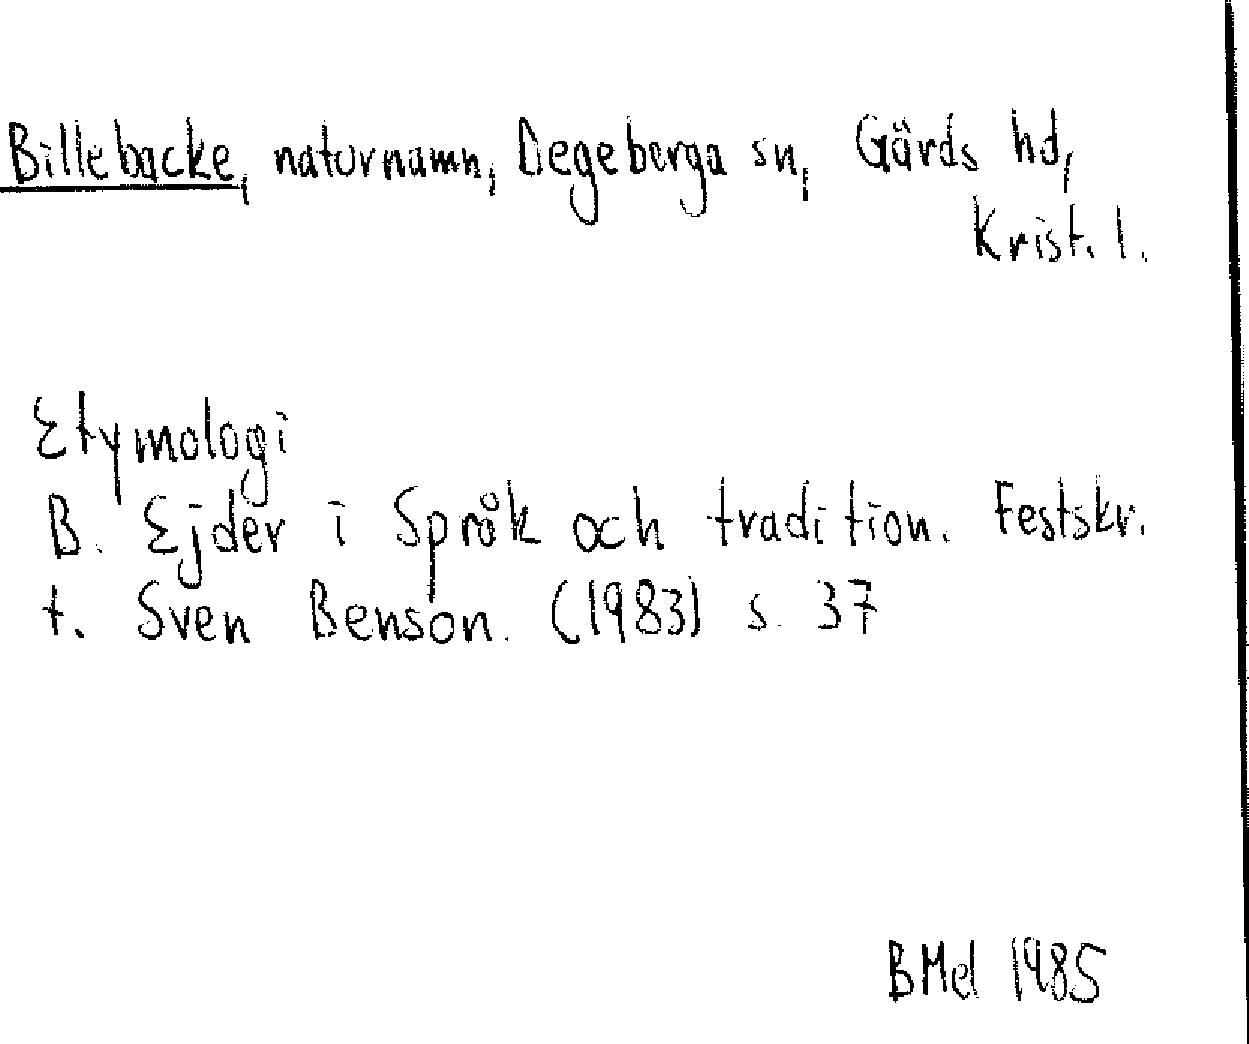 Billebacke, naturnamn, Degeberga sn, Gärds hd,
Krist. l.
Etymologi
B. Ejder i Språk och tradition. Festskr.
t. Sven Benson. (1983) s. 37
BMel 1985